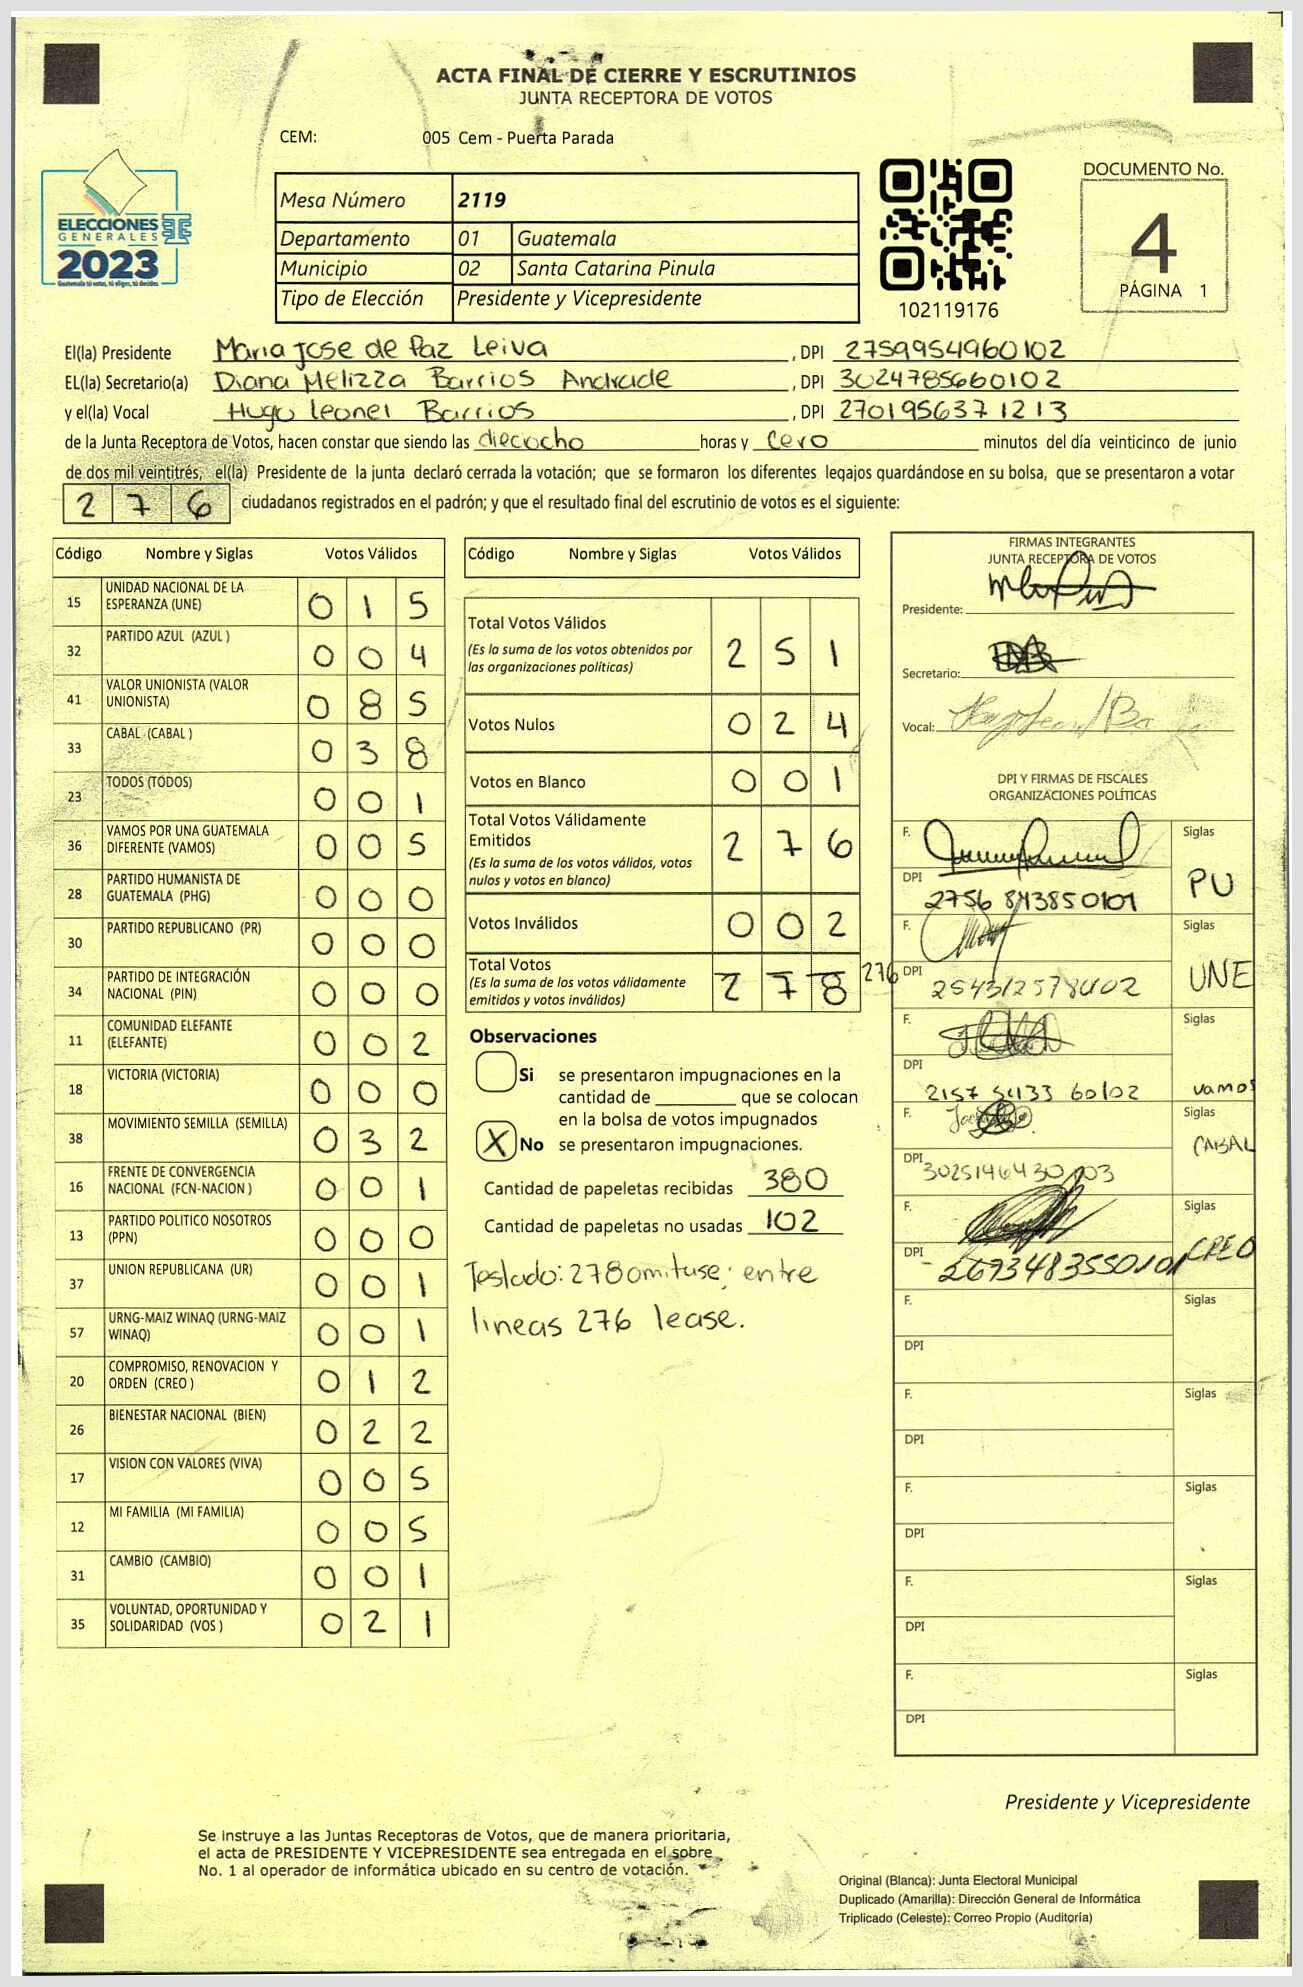 ACTA FINAL DE CIERRE Y ESCRUTINIOS
JUNTA RECEPTORA DE VOTOS
CEM: 005 Cem - Puerta Parada
ELECCIONES
GENERALES
2023
Guatemala tú votas, tú eliges, tú decides
Mesa Número 2119
Departamento 01 Guatemala
Municipio 02 Santa Catarina Pinula
Tipo de Elección Presidente y Vicepresidente
102119176
DOCUMENTO No.
4
PÁGINA 1
El(la) Presidente Maria Jose de Paz Leiva , DPI 2759954960102
EL(la) Secretario(a) Diana Melizza Barrios Andrade , DPI 3024785660102
y el(la) Vocal Hugo Leonel Barrios , DPI 2701956371213
de la Junta Receptora de Votos, hacen constar que siendo las dieciocho horas y cero minutos del día veinticinco de junio
de dos mil veintitrés, el(la) Presidente de la junta declaró cerrada la votación; que se formaron los diferentes legajos guardándose en su bolsa, que se presentaron a votar
276 ciudadanos registrados en el padrón; y que el resultado final del escrutinio de votos es el siguiente:
Código Nombre y Siglas Votos Válidos
15 UNIDAD NACIONAL DE LA ESPERANZA (UNE) 0 1 5
32 PARTIDO AZUL (AZUL ) 0 0 4
41 VALOR UNIONISTA (VALOR UNIONISTA) 0 8 5
33 CABAL (CABAL ) 0 3 8
23 TODOS (TODOS) 0 0 1
36 VAMOS POR UNA GUATEMALA DIFERENTE (VAMOS) 0 0 5
28 PARTIDO HUMANISTA DE GUATEMALA (PHG) 0 0 0
30 PARTIDO REPUBLICANO (PR) 0 0 0
34 PARTIDO DE INTEGRACIÓN NACIONAL (PIN) 0 0 0
11 COMUNIDAD ELEFANTE (ELEFANTE) 0 0 2
18 VICTORIA (VICTORIA) 0 0 0
38 MOVIMIENTO SEMILLA (SEMILLA) 0 3 2
16 FRENTE DE CONVERGENCIA NACIONAL (FCN-NACION ) 0 0 1
13 PARTIDO POLITICO NOSOTROS (PPN) 0 0 0
37 UNION REPUBLICANA (UR) 0 0 1
57 URNG-MAIZ WINAQ (URNG-MAIZ WINAQ) 0 0 1
20 COMPROMISO, RENOVACION Y ORDEN (CREO ) 0 1 2
26 BIENESTAR NACIONAL (BIEN) 0 2 2
17 VISION CON VALORES (VIVA) 0 0 5
12 MI FAMILIA (MI FAMILIA) 0 0 5
31 CAMBIO (CAMBIO) 0 0 1
35 VOLUNTAD, OPORTUNIDAD Y SOLIDARIDAD (VOS ) 0 2 1
Código Nombre y Siglas Votos Válidos
Total Votos Válidos 2 5 1
(Es la suma de los votos obtenidos por
las organizaciones políticas)
Votos Nulos 0 2 4
Votos en Blanco 0 0 1
Total Votos Válidamente
Emitidos 2 7 6
(Es la suma de los votos válidos, votos
nulos y votos en blanco)
Votos Inválidos 0 0 2
Total Votos 2 7 8 276
(Es la suma de los votos válidamente
emitidos y votos inválidos)
Observaciones
Si se presentaron impugnaciones en la
cantidad de ________ que se colocan
en la bolsa de votos impugnados
X No se presentaron impugnaciones.
Cantidad de papeletas recibidas 380
Cantidad de papeletas no usadas 102
Testado: 278 omitase; entre
lineas 276 lease.
FIRMAS INTEGRANTES
JUNTA RECEPTORA DE VOTOS
Presidente:
Secretario:
Vocal:
DPI Y FIRMAS DE FISCALES
ORGANIZACIONES POLÍTICAS
F. Siglas
DPI 2756 843850101 PU
F. Siglas
DPI UNE
F. Siglas
DPI 2157 54133 60102 vamos
F. Siglas
DPI CABAL
F. Siglas
DPI CREO
F. Siglas
DPI
F. Siglas
DPI
F. Siglas
DPI
F. Siglas
DPI
F. Siglas
DPI
Presidente y Vicepresidente
Se instruye a las Juntas Receptoras de Votos, que de manera prioritaria,
el acta de PRESIDENTE Y VICEPRESIDENTE sea entregada en el sobre
No. 1 al operador de informática ubicado en su centro de votación.
Original (Blanca): Junta Electoral Municipal
Duplicado (Amarilla): Dirección General de Informática
Triplicado (Celeste): Correo Propio (Auditoría)